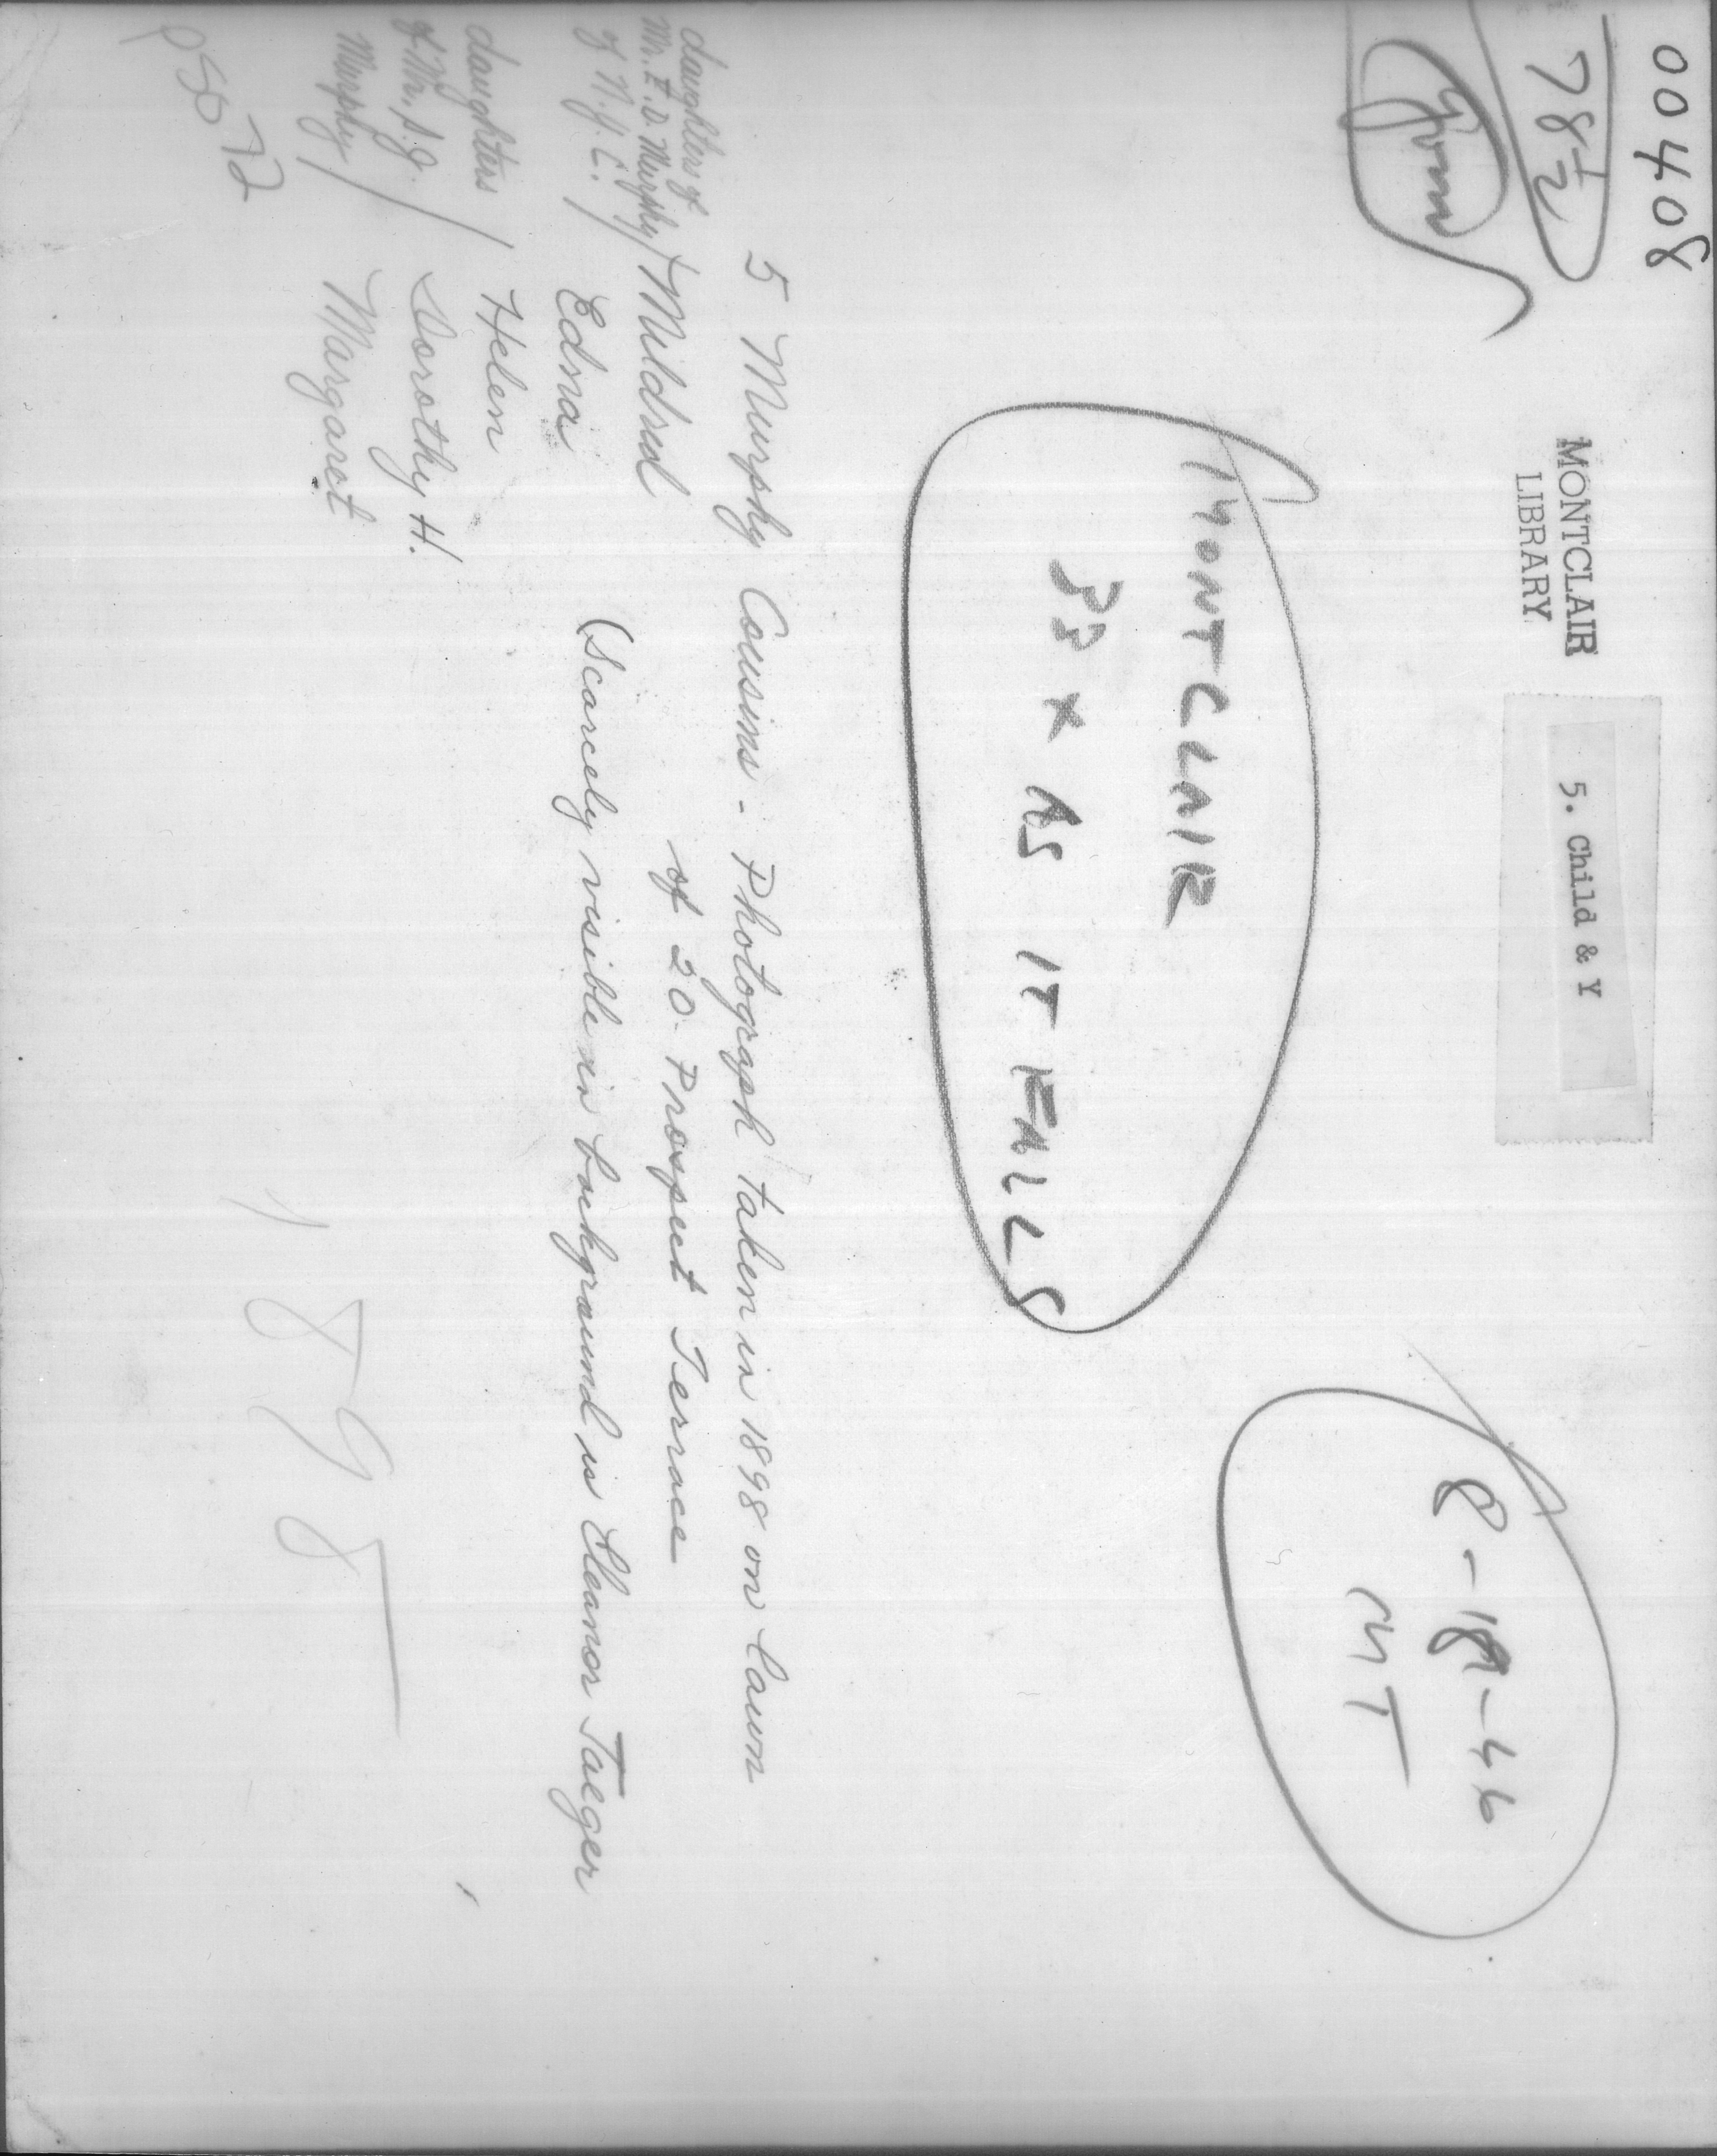 00408
78½
MONTCLAIR
LIBRARY
5. Child & Y
8-18-46
MT
MONTCLAIR
33 x AS IT FALLS
5 Murphy Cousins - Photograph taken in 1898 on lawn
of 20 Prospect Terrace
(Scarcely visible in background is Eleanor Jaeger
daughters of
Mr. F. D. Murphy / Mildred
of N.Y.C. / Edna
daughters / Helen
of Mr. S. J. / Dorothy H.
Murphy / Margaret
p 58 72
1898